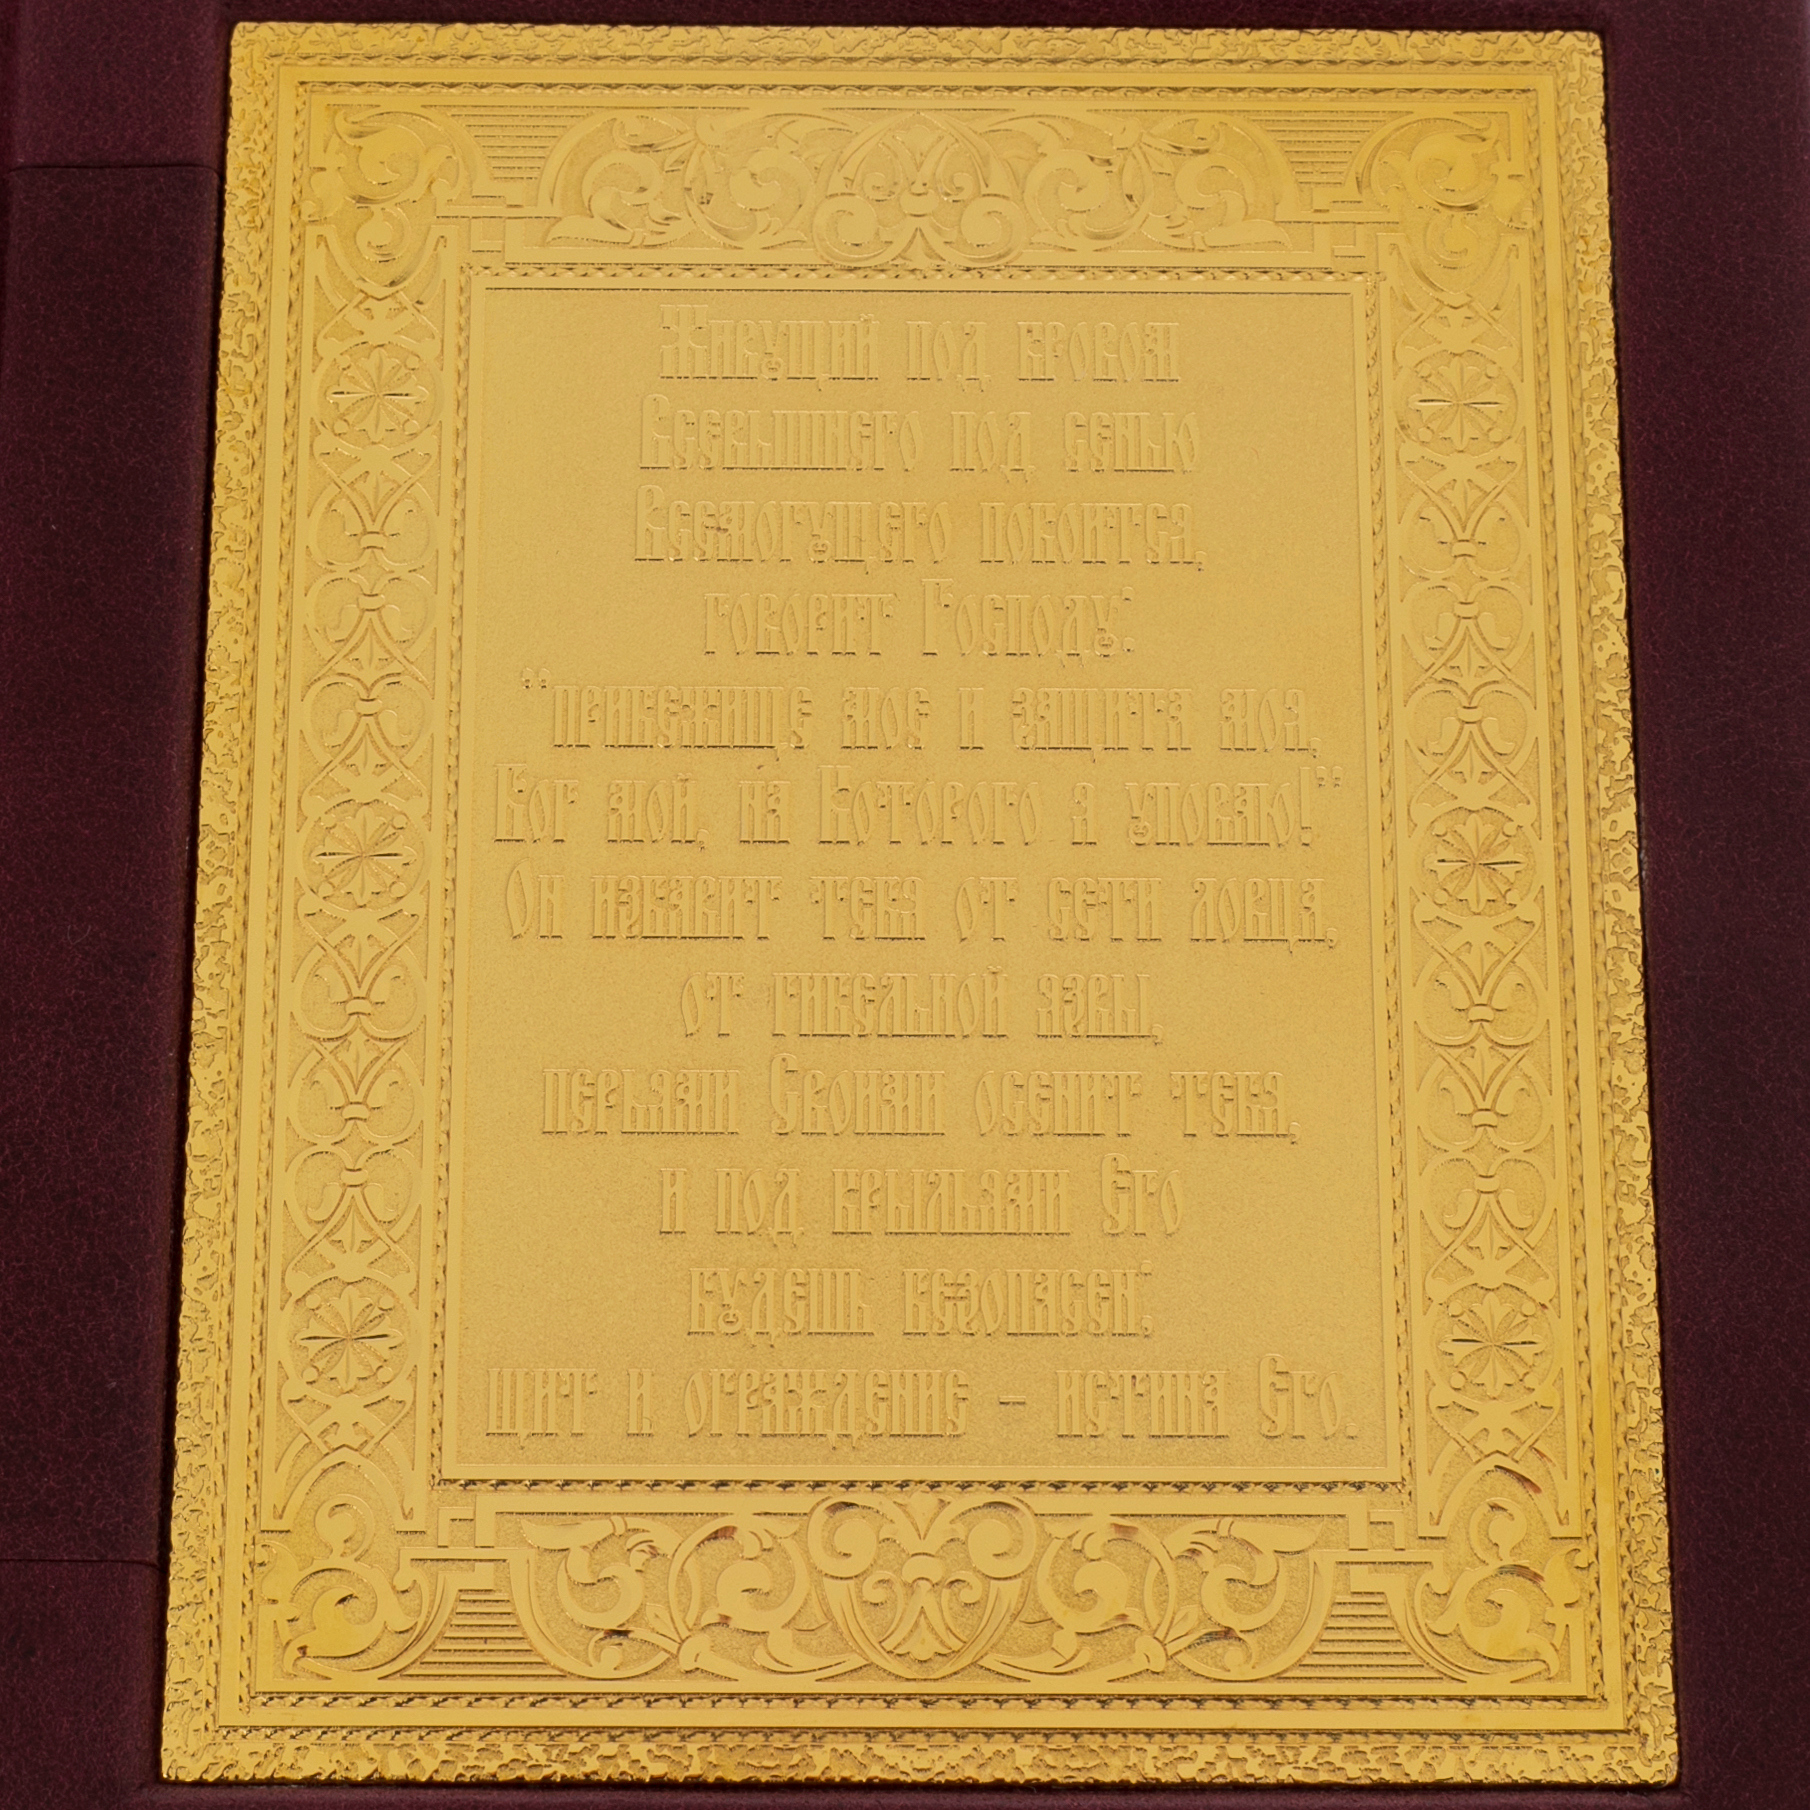 Живущий под кровом
Всевышнего под сенью
Всемогущего покоится,
говорит Господу:
“прибежище мое и защита моя,
Бог мой, на Которого я уповаю!”
Он избавит тебя от сети ловца,
от гибельной язвы,
перьями Своими осенит тебя,
и под крыльями Его
будешь безопасен;
щит и ограждение – истина Его.